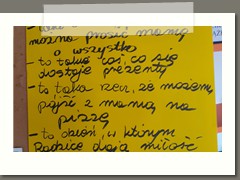 można prosić mamą
o wszystko
- to takie coś, co się
dostaje prezenty
- to taka rzecz, że możemy
pójść z mamą na
pizzę
- to dzień, w którym
Rodzice dają miłość